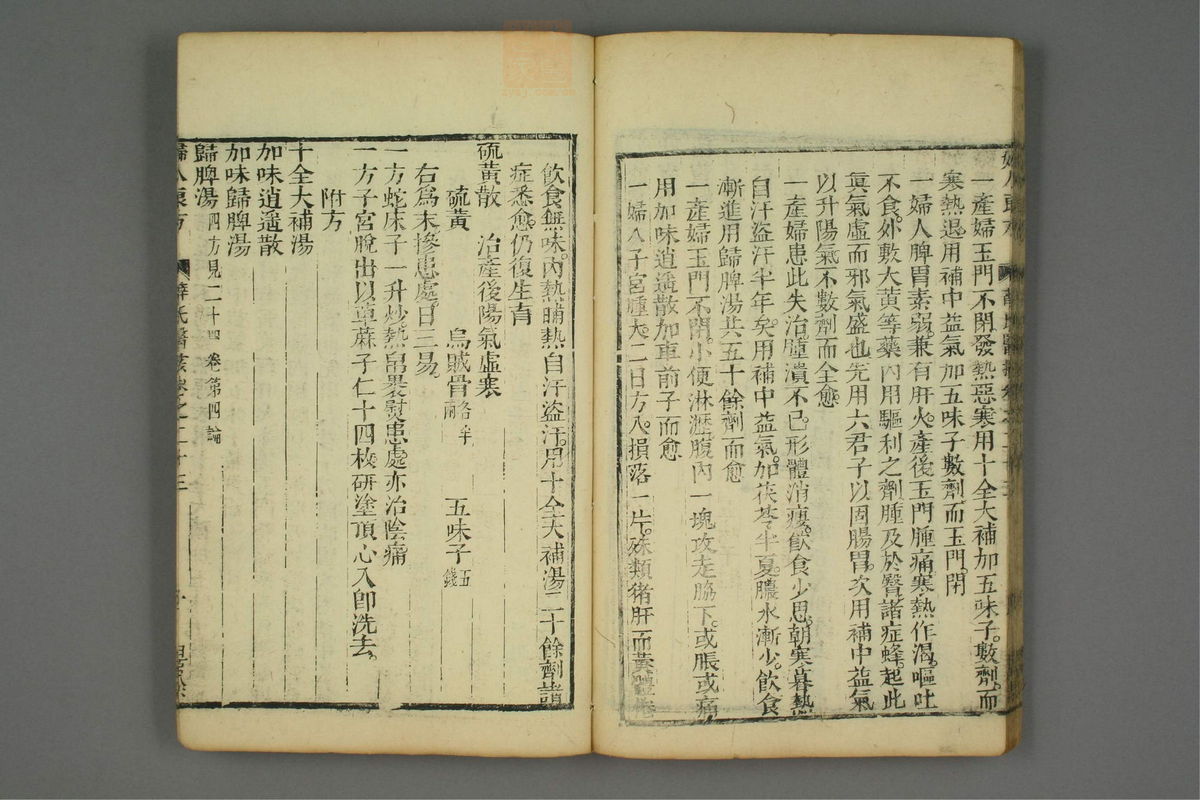 一產婦玉門不閉發熱惡寒用十全大補加五味子數劑而
寒熱退用補中益氣加五味子數劑而玉門閉
一婦人脾胃素弱兼有肝火產後玉門腫痛寒熱作渴嘔吐
不食外敷大黃等藥內用驅利之劑腫及於臀諸症蜂起此
眞氣虛而邪氣盛也先用六君子以固腸胃次用補中益氣
以升陽氣不數劑而全愈
一產婦患此失治腫潰不已形體消瘦飲食少思朝寒暮熱
自汗盜汗半年矣用補中益氣加茯苓半夏膿水漸少飲食
漸進用歸脾湯共五十餘劑而愈
一產婦玉門不閉小便淋瀝腹內一塊攻走脇下或脹或痛
用加味逍遙散加車前子而愈
一婦人子宮腫大二日方入損落一片殊類猪肝而黃體倦
飲食無味內熱晡熱自汗盜汗用十全大補湯二十餘劑諸
症悉愈仍復生育
硫黃散 治產後陽氣虛寒
硫黃 烏賊骨各半兩 五味子五錢
右爲末摻患處日三易
一方蛇床子一升炒熱帛裹熨患處亦治陰痛
一方子宮脫出以萆麻子仁十四枚研塗頂心入卽洗去
附方
十全大補湯
加味逍遙散
加味歸脾湯
歸脾湯四方見二十四卷第四論
婦人良方 薛氏醫按卷之二十三